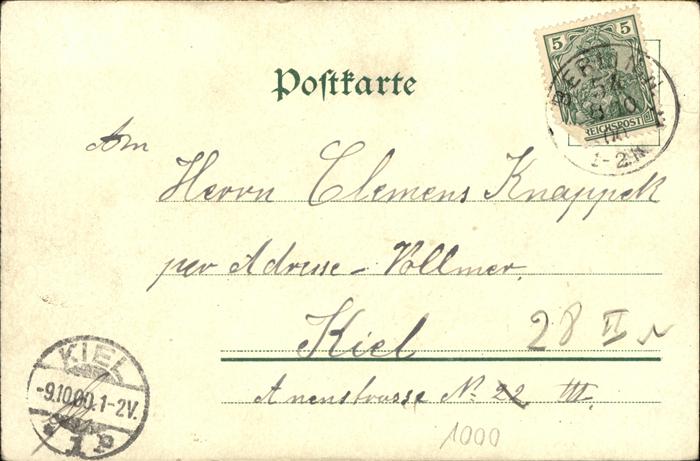 5 5
REICHSPOST
BERLIN
54
1-2.N.
Postkarte
An
Herrn Clemens Knappek
per Adresse - Vollmer.
Kiel 28 II
Anenstrasse No 22 III.
KIEL
-9.10.00.1-2V.
1P
1000